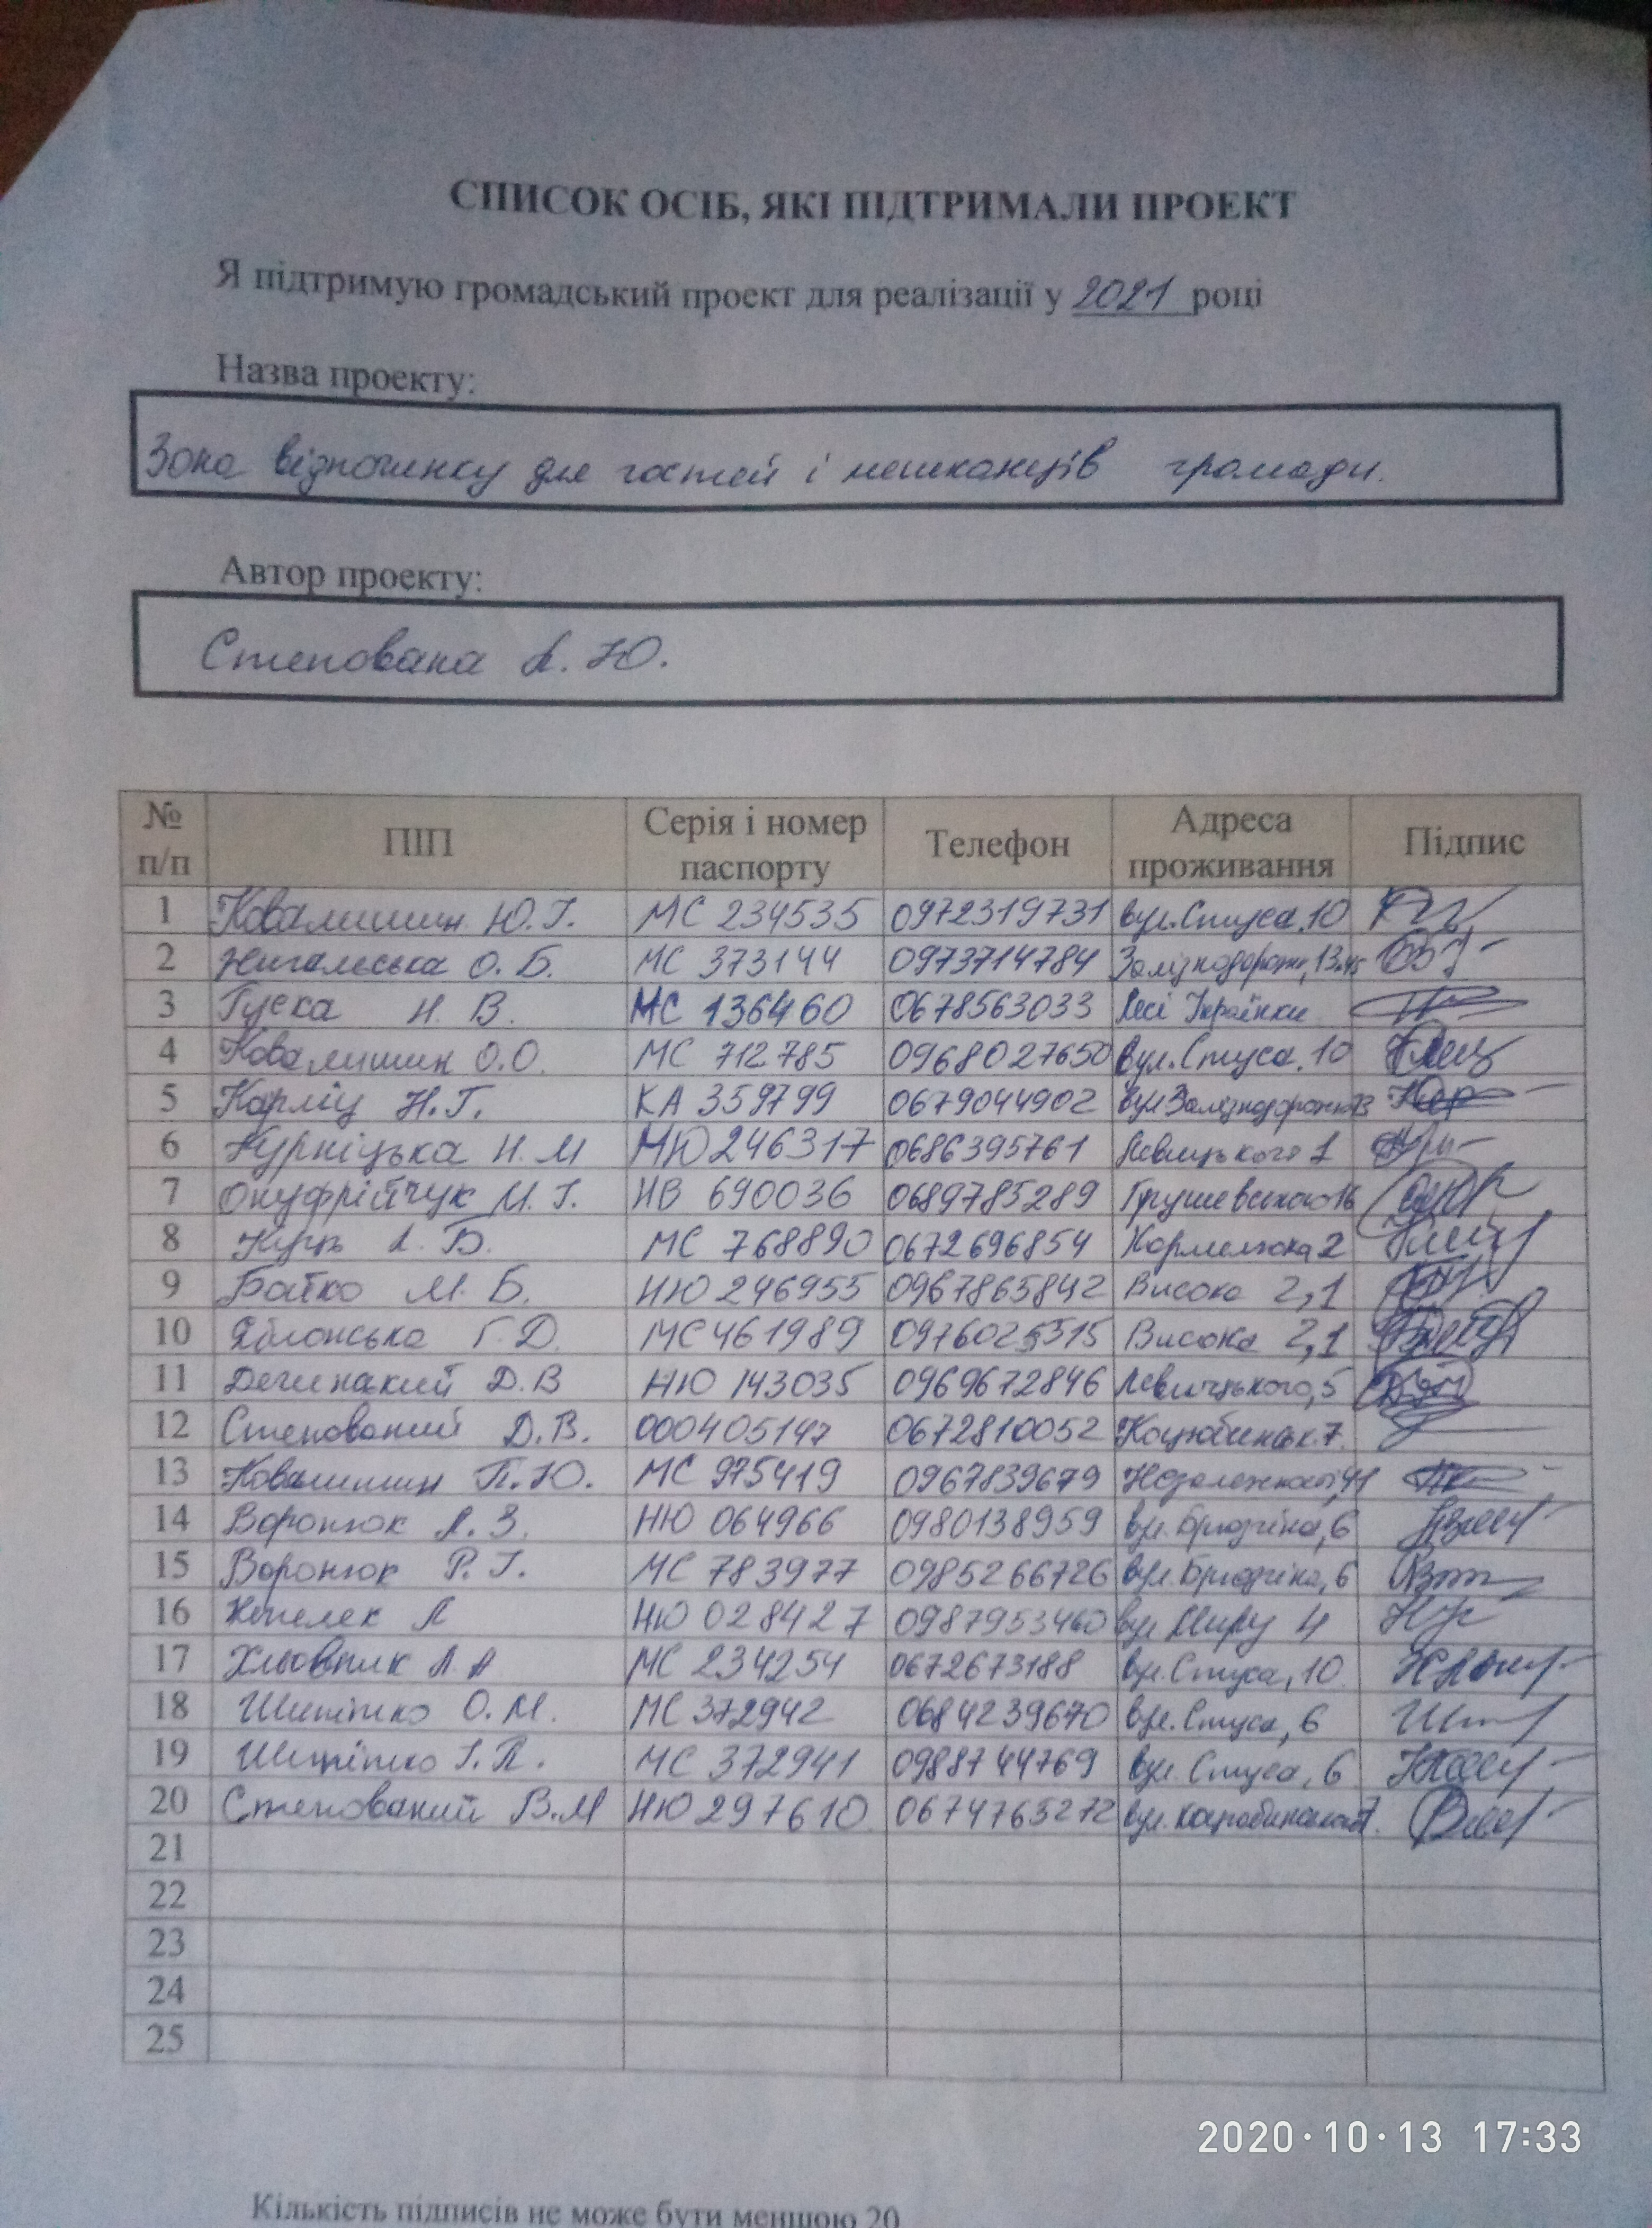 СПИСОК ОСІБ, ЯКІ ПІДТРИМАЛИ ПРОЕКТ
Я підтримую громадський проект для реалізації у 2021 році
Назва проекту:
Зона відпочинку для гостей і мешканців громади.
Автор проекту:
Степована Л. Ю.
№ п/п ПІП Серія і номер паспорту Телефон Адреса проживання Підпис
1 Ковалишин Ю.Г. МС 234535 0972319731 вул.Стуса,10
2 О. Б. МС 373144 0973714784
3 Гуска Н. В. МС 136460 0678563033 Лесі Українки
4 Ковалишин О.О. МС 712785 0968027650 вул.Стуса,10
5 Карліц Н.Г. КА 359799 0679044902
6 Курніцька Н. М МЮ 246317 0686395761 Левицького 1
7 Онуфрійчук М. І. НВ 690036 0689785289 Грушевського 16
8 Куць Л. Б. МС 768890 0672696854 Кармелюка 2
9 Бойко М. Б. НЮ 246955 0967865842 Висока 2,1
10 Яблонська Г. Д. МС 461989 0976025315 Висока 2,1
11 Д.В НЮ 143035 0969672846 Левицького,5
12 Степований Д.В. 000405147 0672810052 Коцюбинськ.7
13 Ковалишин П.Ю. МС 975419 0967839679
14 Воронюк Л. З. НЮ 064966 0980138959 6
15 Воронюк Р. І. МС 783977 0985266726 6
16 Л НЮ 028427 0987953460 вул Миру 4
17 Л А МС 234254 0672673188 вул.Стуса,10
18 О.М. МС 372942 0684239670 вул.Стуса,6
19 І.П. МС 372941 0988744769 вул.Стуса,6
20 Степований В.М НЮ 297610 0674765272
21
22
23
24
25
2020·10·13 17:33
Кількість підписів не може бути меншою 20